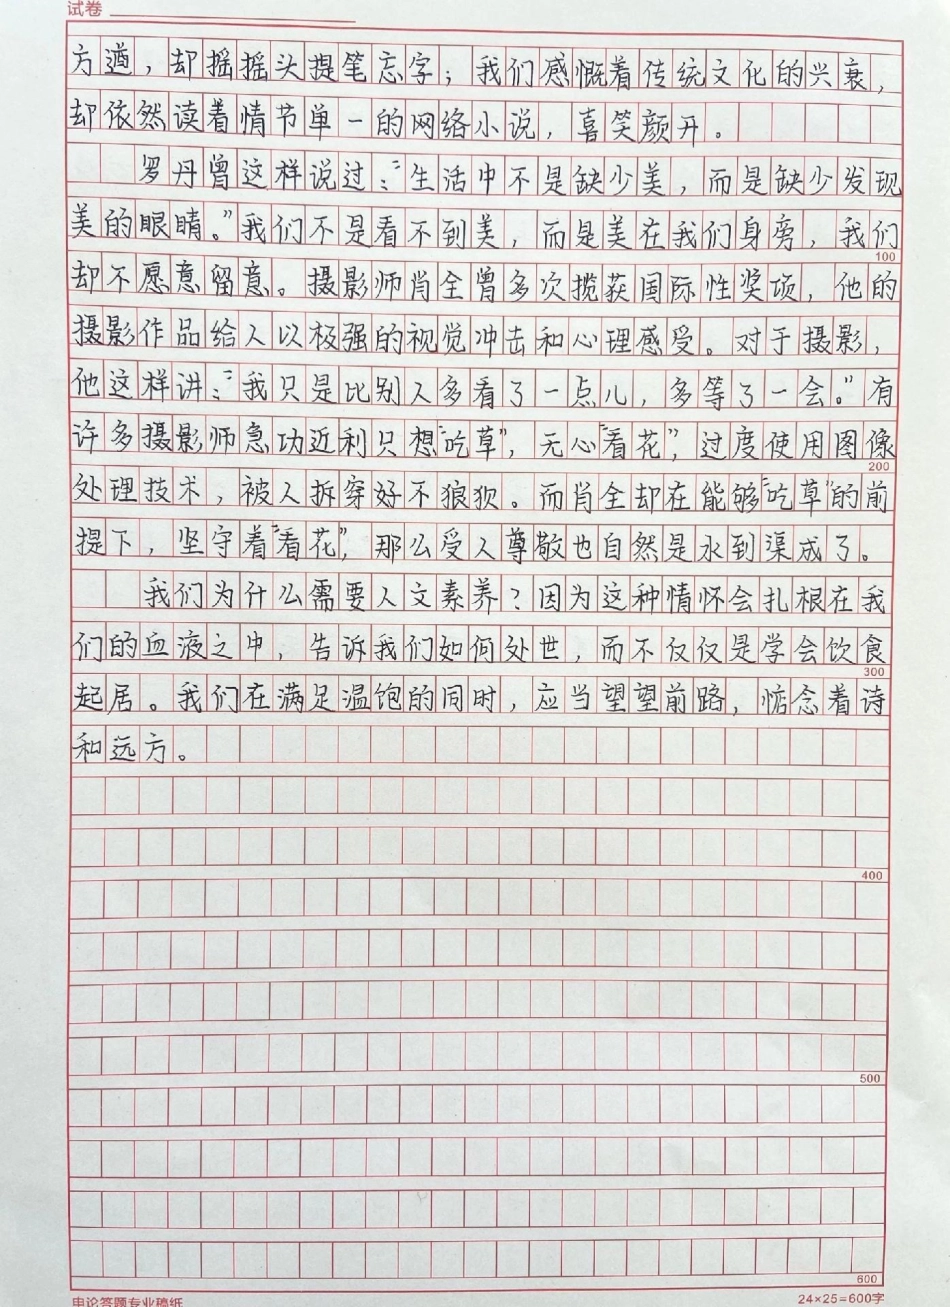 试卷
方遒，却摇摇头提笔忘字；我们感慨着传统文化的兴衰，
却依然读着情节单一的网络小说，喜笑颜开。
罗丹曾这样说过：“生活中不是缺少美，而是缺少发现
美的眼睛。”我们不是看不到美，而是美在我们身旁，我们
100
却不愿意留意。摄影师肖全曾多次揽获国际性奖项，他的
摄影作品给人以极强的视觉冲击和心理感受。对于摄影，
他这样讲：“我只是比别人多看了一点儿，多等了一会。”有
许多摄影师急功近利只想“吃草”，无心“看花”，过度使用图像
200
处理技术，被人拆穿好不狼狈。而肖全却在能够“吃草”的前
提下，坚守着“看花”，那么受人尊敬也自然是水到渠成了。
我们为什么需要人文素养？因为这种情怀会扎根在我
们的血液之中，告诉我们如何处世，而不仅仅是学会饮食
300
起居。我们在满足温饱的同时，应当望望前路，惦念着诗
和远方。
400
500
600
申论答题专业稿纸
24×25=600字